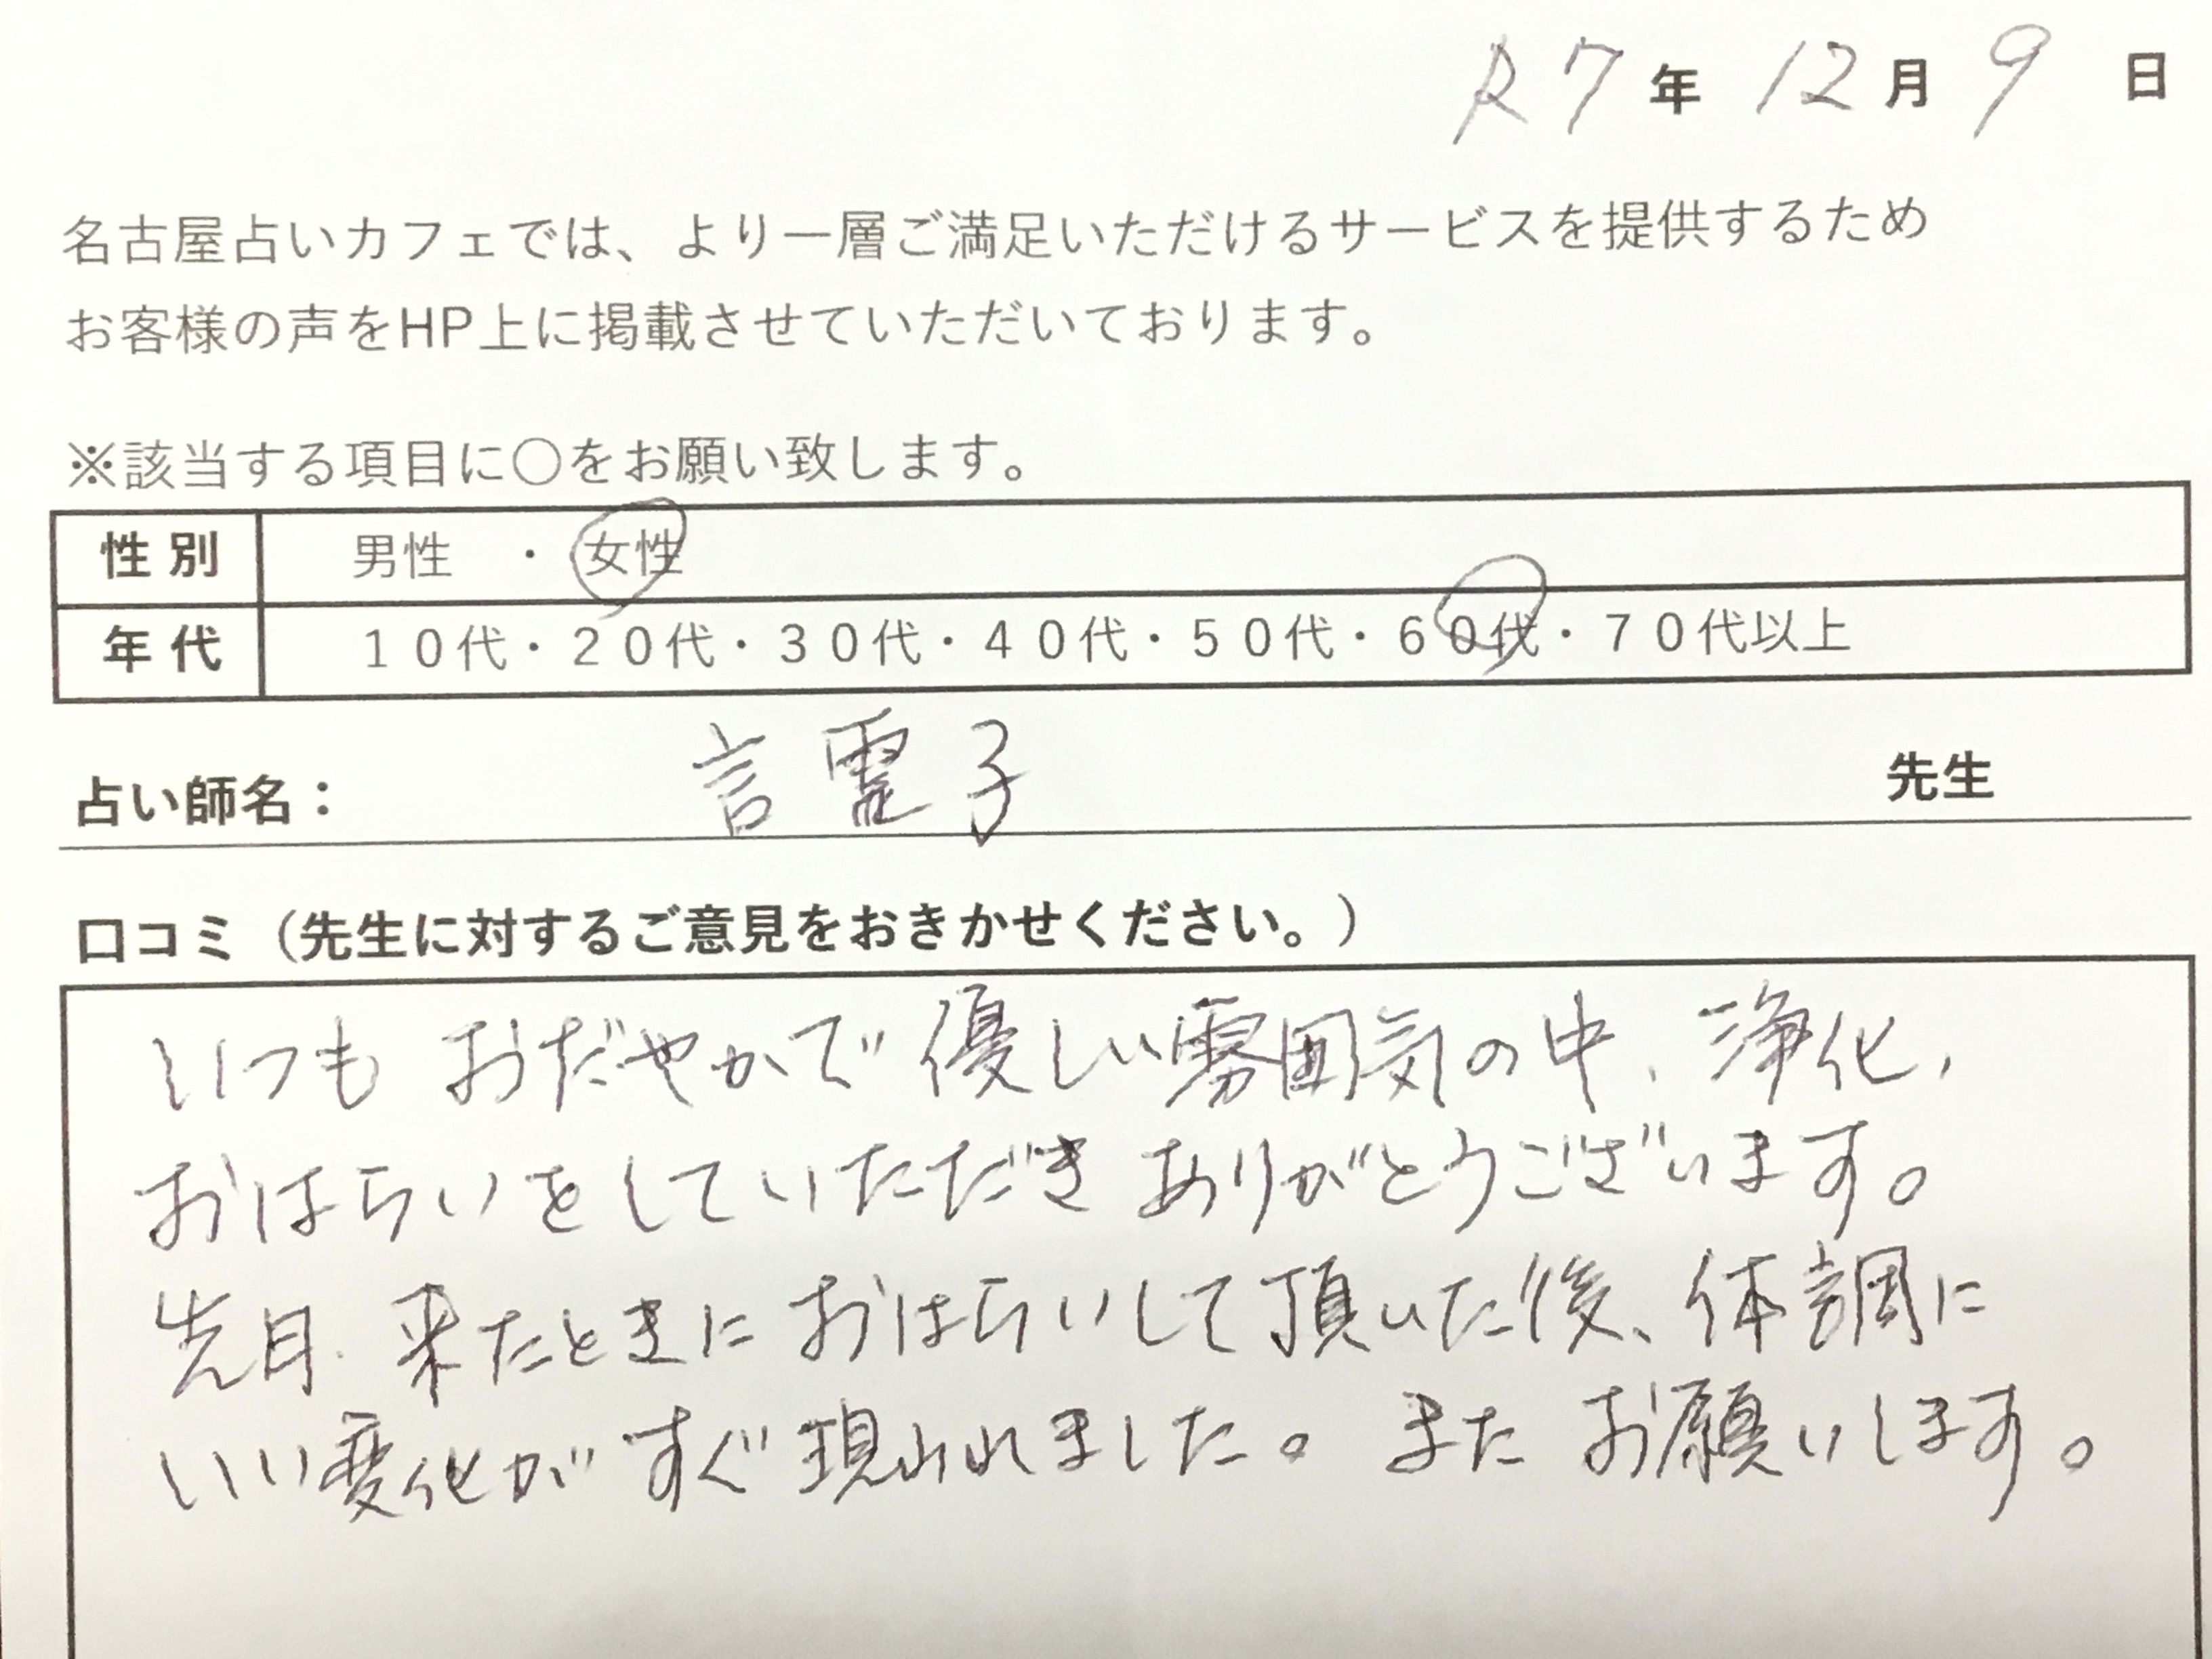 R7年 12月 9日
名古屋占いカフェでは、より一層ご満足いただけるサービスを提供するため
お客様の声をHP上に掲載させていただいております。
※該当する項目に〇をお願い致します。
性別 男性 ・ 女性
年代 10代・20代・30代・40代・50代・60代・70代以上
占い師名： 言霊子 先生
口コミ（先生に対するご意見をおきかせください。）
いつも おだやかで 優しい雰囲気の中、浄化、
おはらいをしていただき ありがとうございます。
先月、来たときに おはらいして頂いた後、体調に
いい変化が すぐ 現われました。 また お願いします。